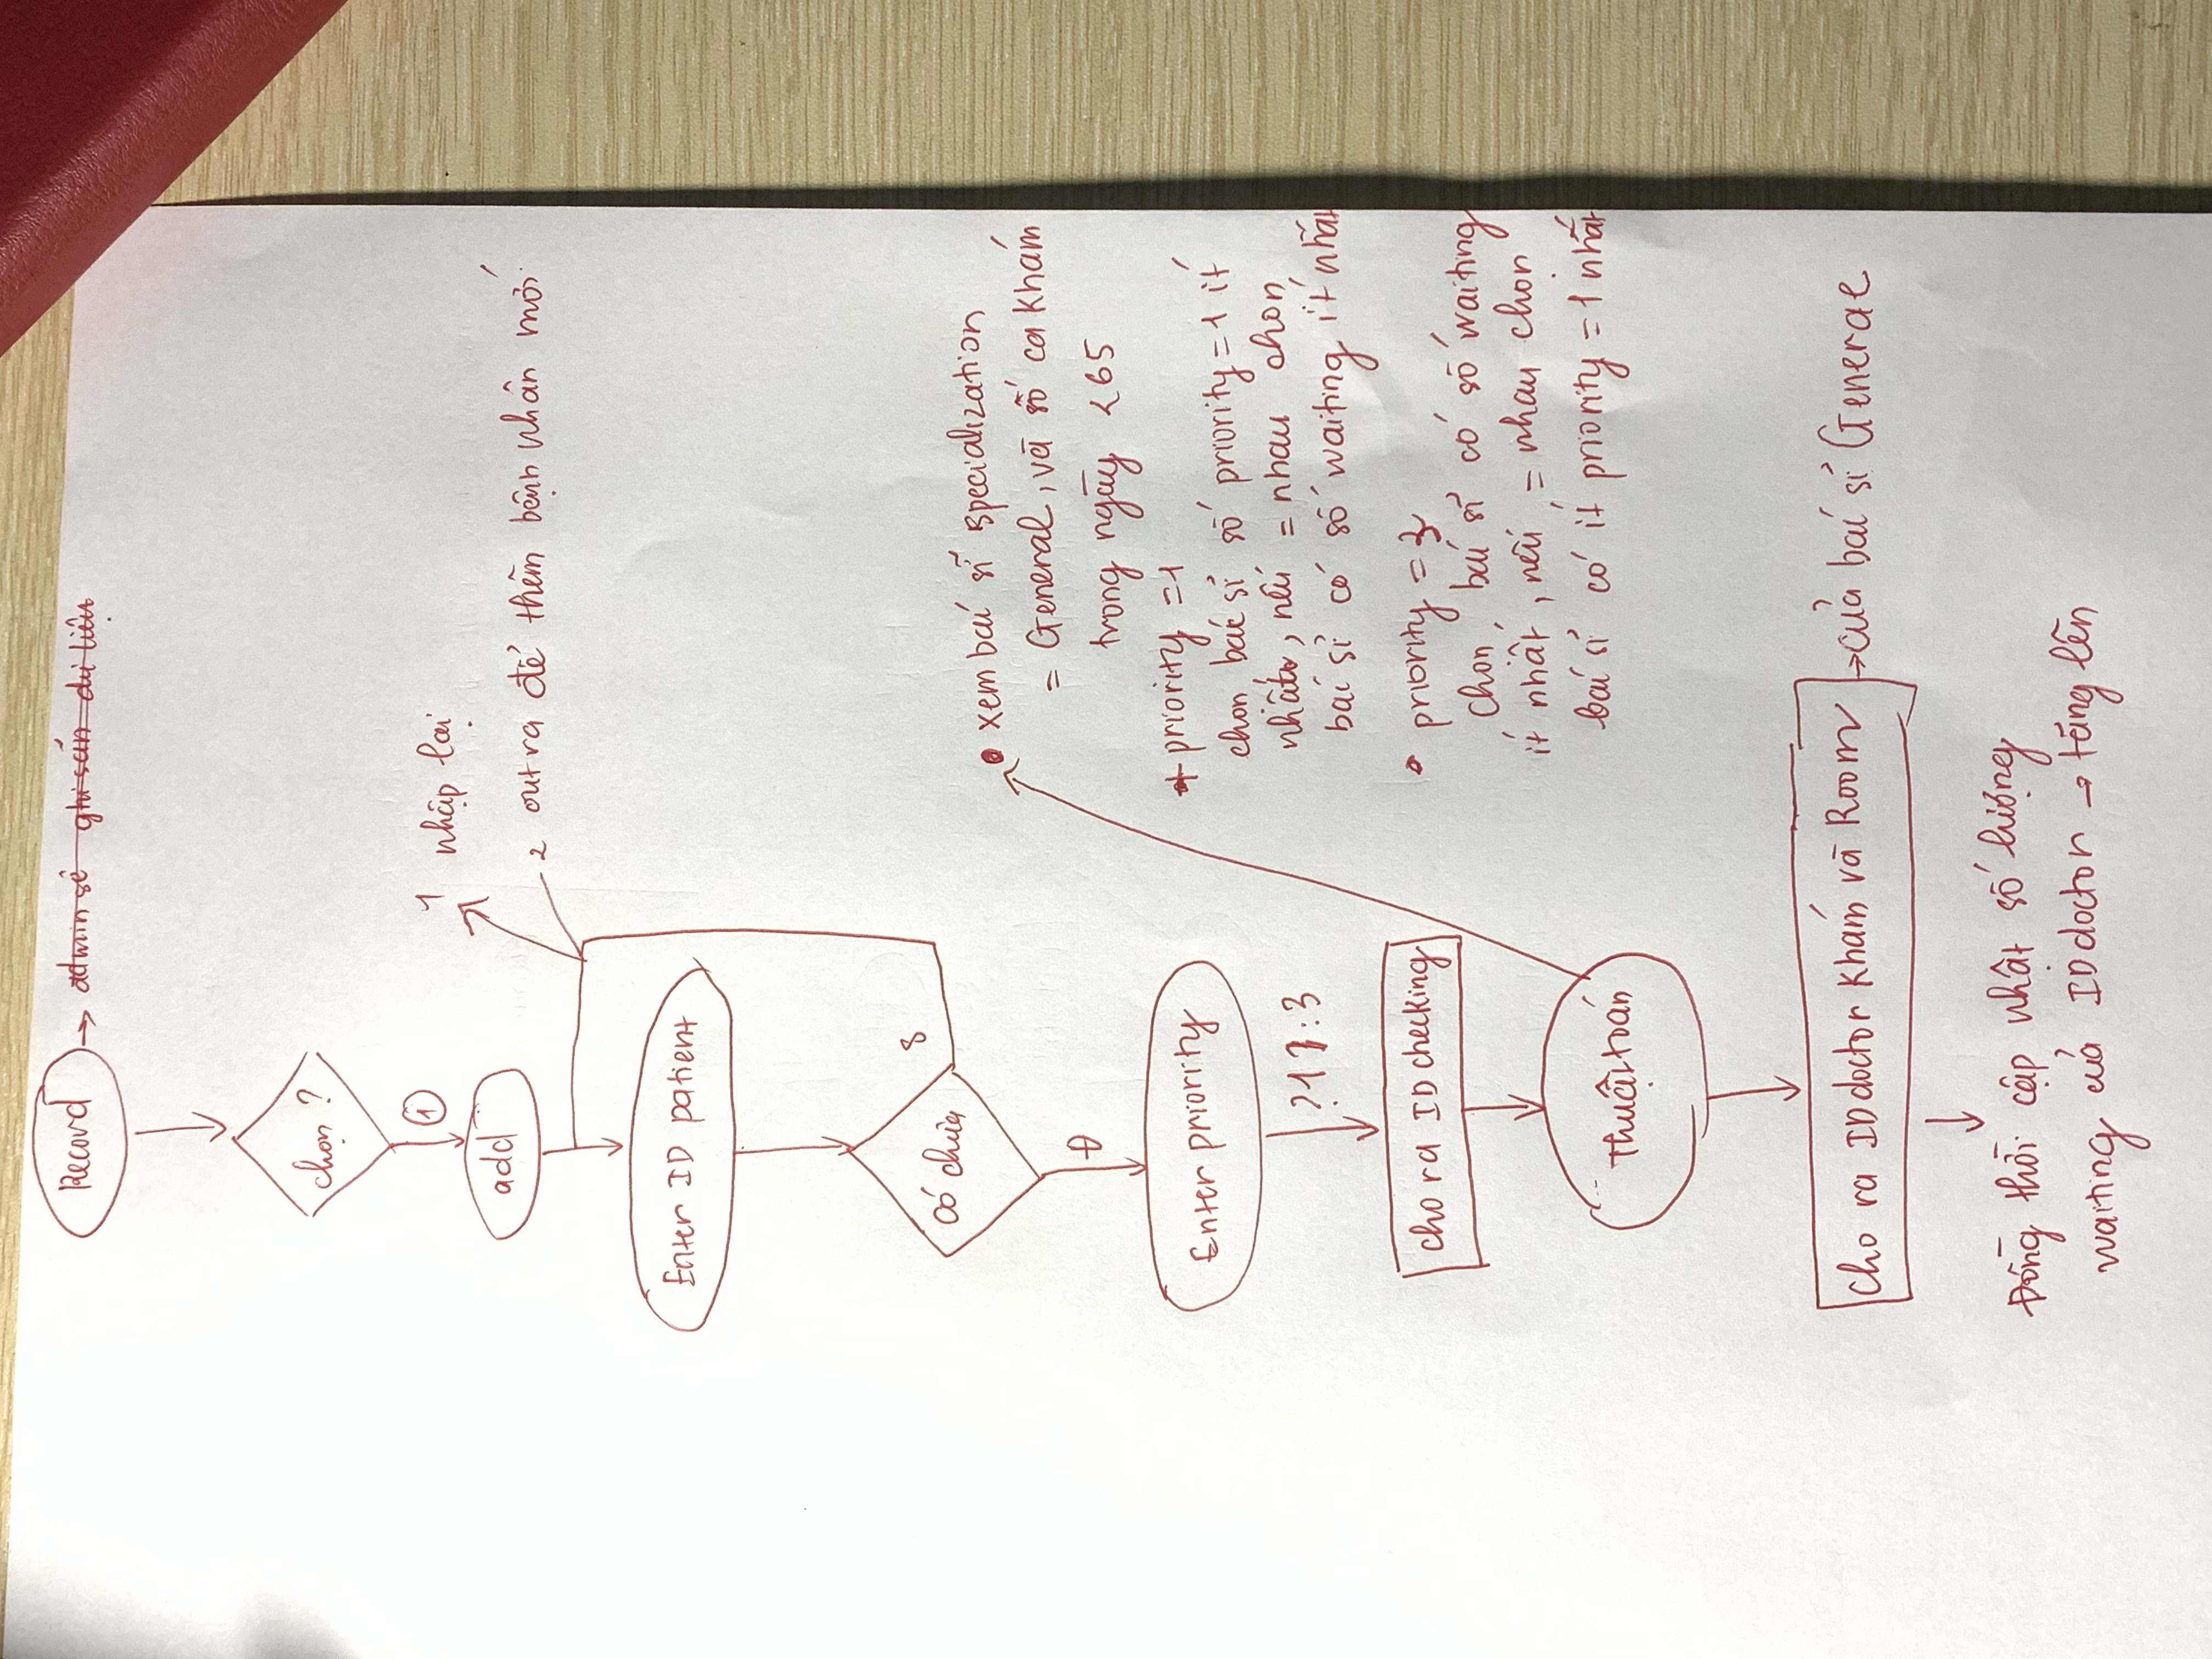 Record → admin sẽ ghi sẵn dữ liệu
chọn ?
1
add
1 nhập lại
2 out ra để thêm bệnh nhân mới
Enter ID patient
Có chưa
S
Đ
Enter priority
Cho ra ID checking
Thuật toán
• xem baí sĩ specialization
= General, và số ca Khám
trong ngày <65
+ priority =1
chọn bác sĩ số priority = 1 ít
nhất, nếu = nhau chọn
baí sĩ có số waiting ít nhất
• priority = 3
chọn baí sĩ có số waiting
ít nhất, nếu = nhau chọn
baí sĩ có ít priority = 1 nhất
Cho ra ID doctor Khám và Room → của baí sĩ General
Đồng thời cập nhật số lượng
waiting của ID doctor → tăng lên